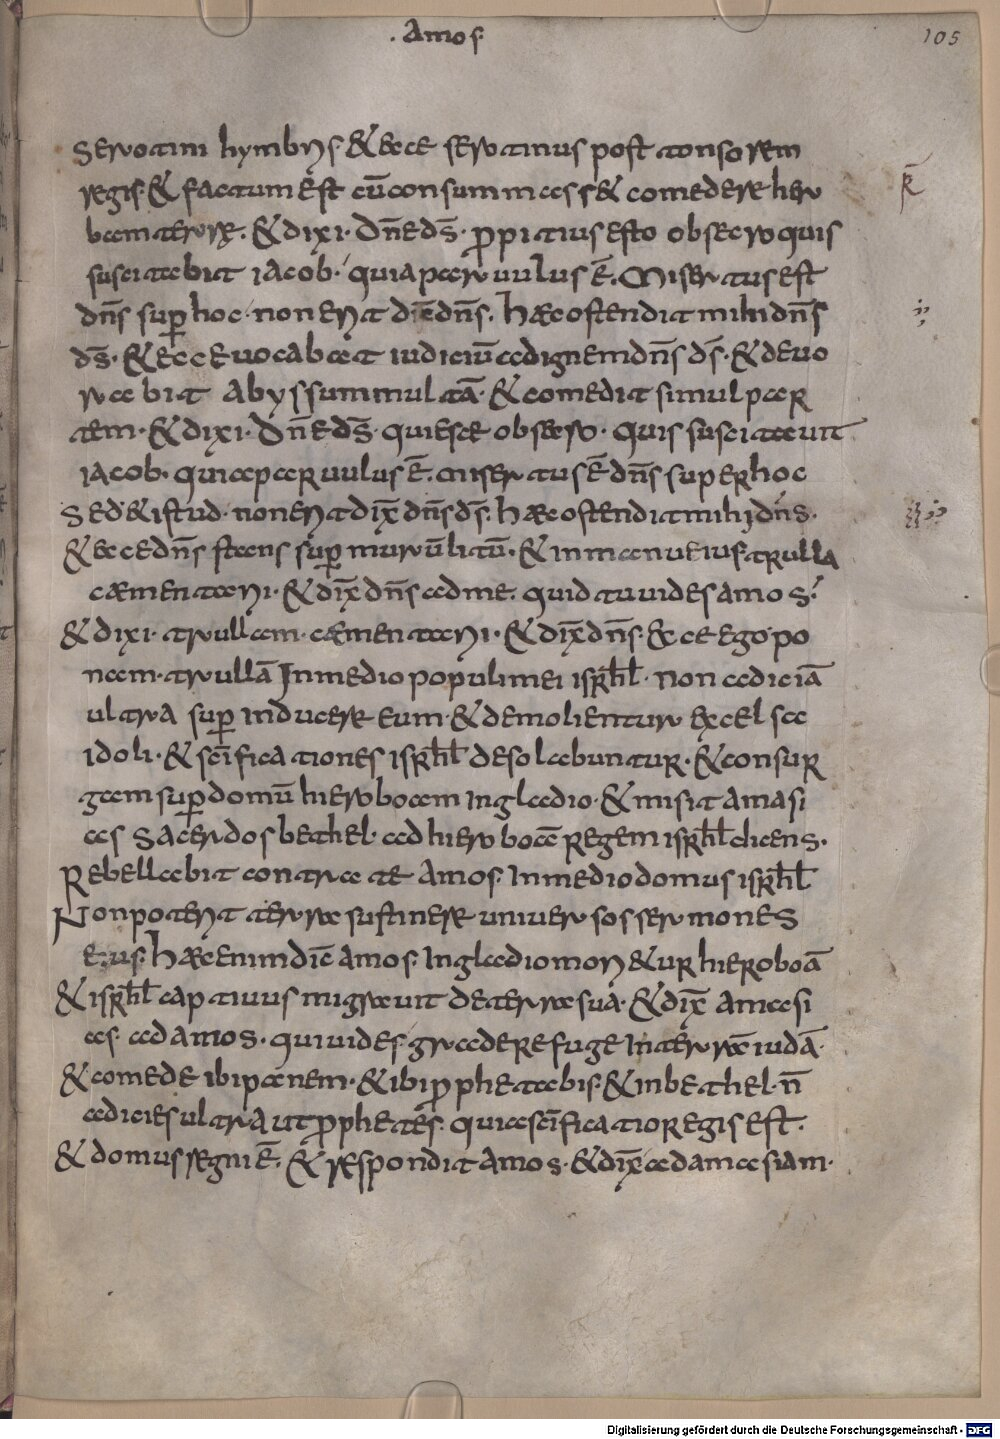 . Amos.
105
Serotini hymbris. & ecce serotinus post tonsorem
regis. & factum est cū consummasset comedere her
bam terrę. & dixi. dn̄e ds̄. ꝓpitius esto obsecro quis
suscitabit iacob. quia paruulus ē. Misertus est
dn̄s suꝑ hoc. non erit dic̄ dn̄s. haec ostendit mihi dn̄s
ds̄. & ecce uocabat iudiciū ad ignem dn̄s ds̄. & deuo
rabit abyssum multā. & comedit simul par
tem. & dixi. dn̄e ds̄. quiesce obsecro. quis suscitauit
iacob. quia paruulus ē. misertus ē dn̄s super hoc
Sed & istud. non erit dix̄ dn̄s ds̄. haec ostendit mihi dn̄s.
& ecce dn̄s stans suꝑ murū litū. & in manu eius trulla
caementarii. & dix̄ dn̄s ad me. quid tu uides amos.
& dixi. trullam. caementarii. & dix̄ dn̄s. ecce ego po
nam. trullā In medio populi mei isrh̄l. non adiciā
ultra suꝑ inducere eum. & demolientur excelsa
idoli. & sc̄ificationes isrh̄l desolabuntur. & consur
gam suꝑ domū hieroboam in gladio. & misit amasi
as sacerdos bethel. ad hieroboā regem isrh̄l dicens.
Rebellabit contra te amos. In medio domus isrh̄l
Non poterit terra sustinere uniuersos sermones
eius. haec enim dic̄ amos. In gladio mori&ur hieroboā
& isrh̄l captiuus migrauit de terra sua. & dix̄ amasi
as. ad amos. qui uides. gradere fuge In terrā iudā.
& comede ibi panem. & ibi ꝓphetabis. & in bethel. n̄
adicies ultra ut ꝓphetes. quia sc̄ificatio regis est.
& domus regni ē. & respondit amos. & dix̄ ad amasiam.
Digitalisierung gefördert durch die Deutsche Forschungsgemeinschaft - DFG